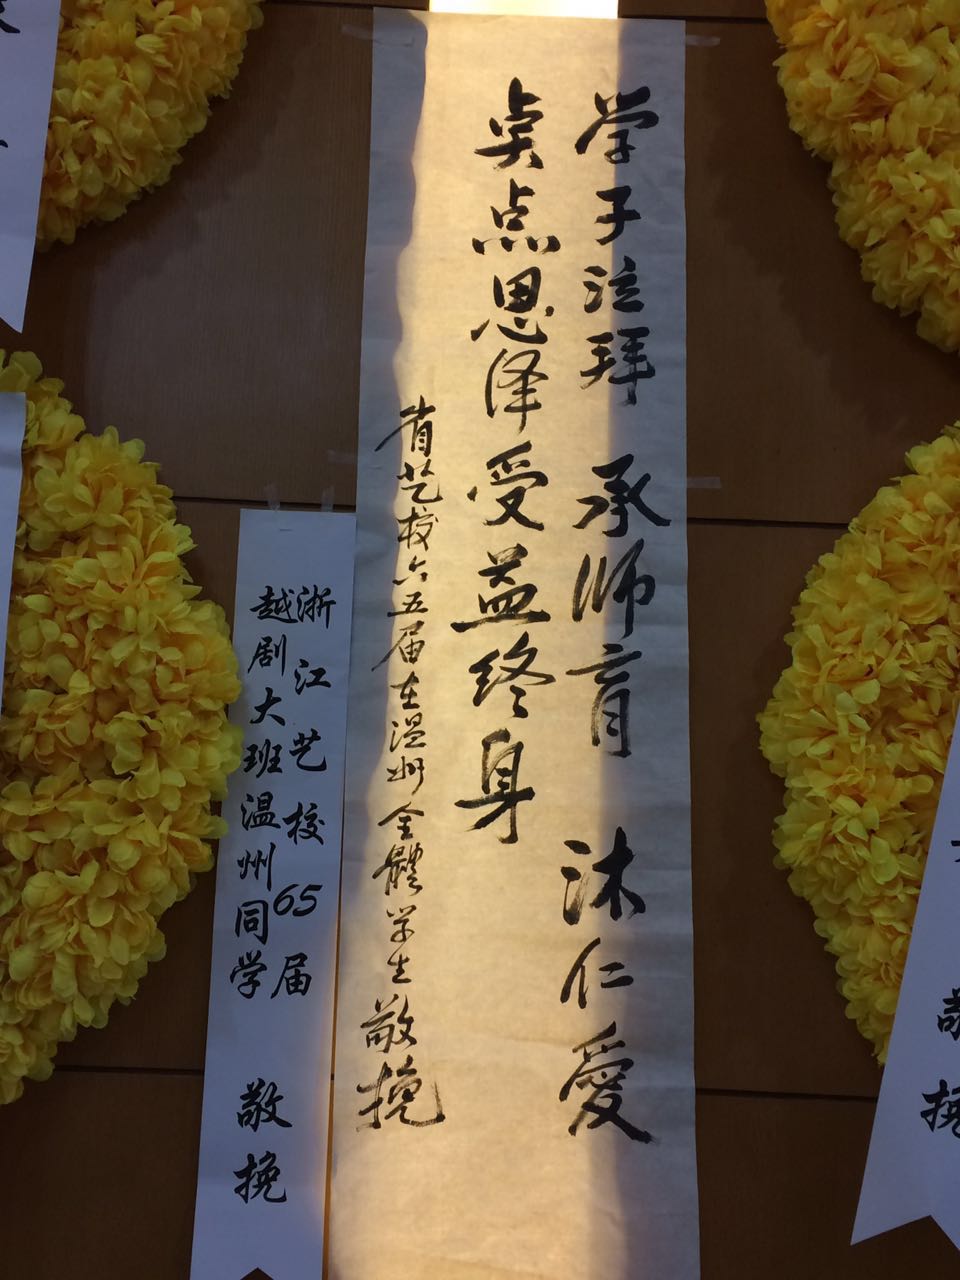 学子泣拜 承师育 沐仁愛
点恩泽受益终身
省艺校六五届在温州全體学生敬挽
浙江艺校65届
越剧大班温州同学
敬挽
敬挽